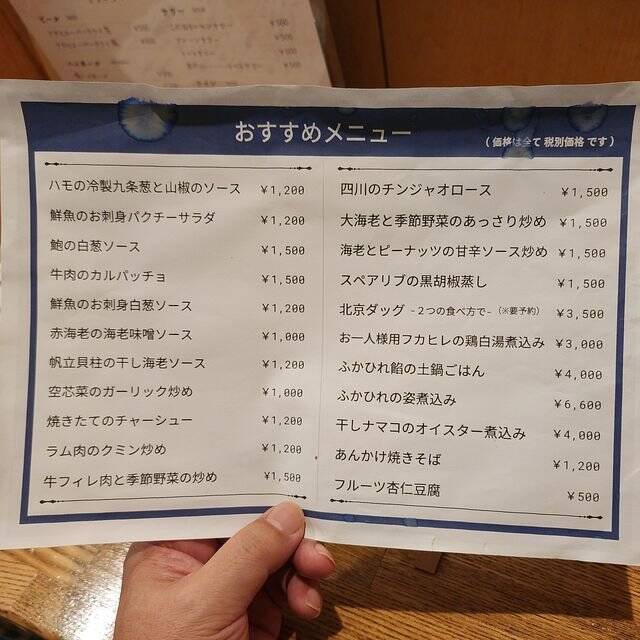 おすすめメニュー
（ 価格は全て 税別価格 です ）
ハモの冷製九条葱と山椒のソース ￥1,200
鮮魚のお刺身パクチーサラダ ￥1,200
鮑の白葱ソース ￥1,500
牛肉のカルパッチョ ￥1,500
鮮魚のお刺身白葱ソース ￥1,200
赤海老の海老味噌ソース ￥1,000
帆立貝柱の干し海老ソース ￥1,200
空芯菜のガーリック炒め ￥1,000
焼きたてのチャーシュー ￥1,200
ラム肉のクミン炒め ￥1,200
牛フィレ肉と季節野菜の炒め ￥1,500
四川のチンジャオロース ￥1,500
大海老と季節野菜のあっさり炒め ￥1,500
海老とピーナッツの甘辛ソース炒め ￥1,500
スペアリブの黒胡椒蒸し ￥1,500
北京ダッグ -２つの食べ方で-（※要予約） ￥3,500
お一人様用フカヒレの鶏白湯煮込み ￥3,000
ふかひれ餡の土鍋ごはん ￥4,000
ふかひれの姿煮込み ￥6,600
干しナマコのオイスター煮込み ￥4,000
あんかけ焼きそば ￥1,200
フルーツ杏仁豆腐 ￥500